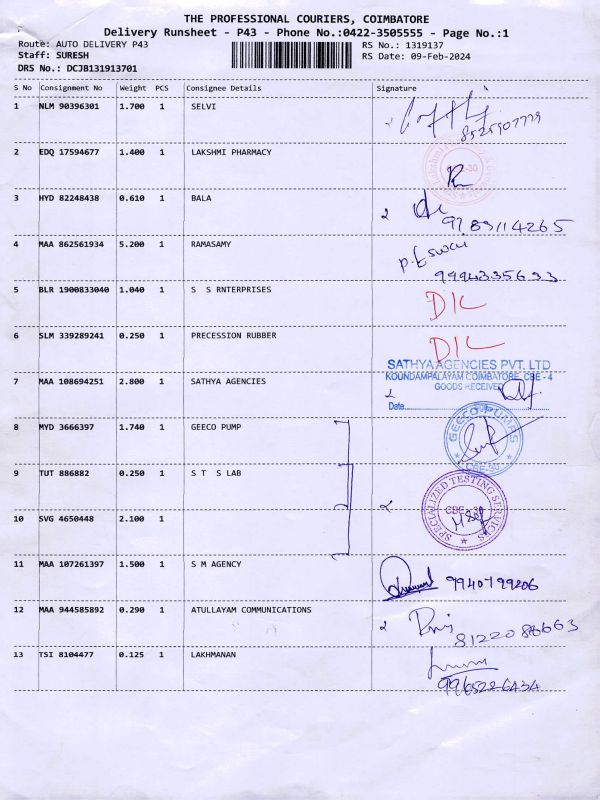 THE PROFESSIONAL COURIERS, COIMBATORE
Delivery Runsheet - P43 - Phone No.:0422-3505555 - Page No.:1
Route: AUTO DELIVERY P43 RS No.: 1319137
Staff: SURESH RS Date: 09-Feb-2024
DRS No.: DCJB131913701
S No Consignment No Weight PCS Consignee Details Signature
1 NLM 90396301 1.700 1 SELVI
8525907779
2 EDQ 17594677 1.400 1 LAKSHMI PHARMACY
3 HYD 82248438 0.610 1 BALA
9789114265
4 MAA 862561934 5.200 1 RAMASAMY P. Eswari
9994335633
5 BLR 1900833040 1.040 1 S S RNTERPRISES DIL
6 SLM 339289241 0.250 1 PRECESSION RUBBER DIL
SATHYA AGENCIES PVT. LTD
KOUNDAMPALAYAM COIMBATORE, CBE - 4
GOODS RECEIVED
7 MAA 108694251 2.800 1 SATHYA AGENCIES
Date
8 MYD 3666397 1.740 1 GEECO PUMP GEECO PUMPS
CBE-30
9 TUT 886882 0.250 1 S T S LAB
SPECIALIZED TESTING SERVICES
CBE - 30
10 SVG 4650448 2.100 1
11 MAA 107261397 1.500 1 S M AGENCY 9940799206
12 MAA 944585892 0.290 1 ATULLAYAM COMMUNICATIONS
8122088663
13 TSI 8104477 0.125 1 LAKHMANAN
9965226434